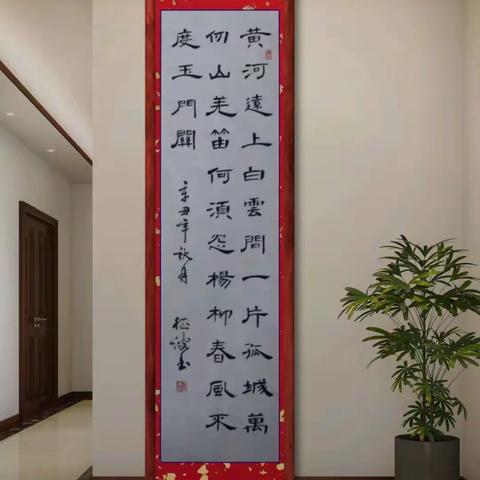 黄河遠上白雲間一片孤城萬
仞山羌笛何湏怨楊柳春風來
度玉門關
辛丑年秋月
书